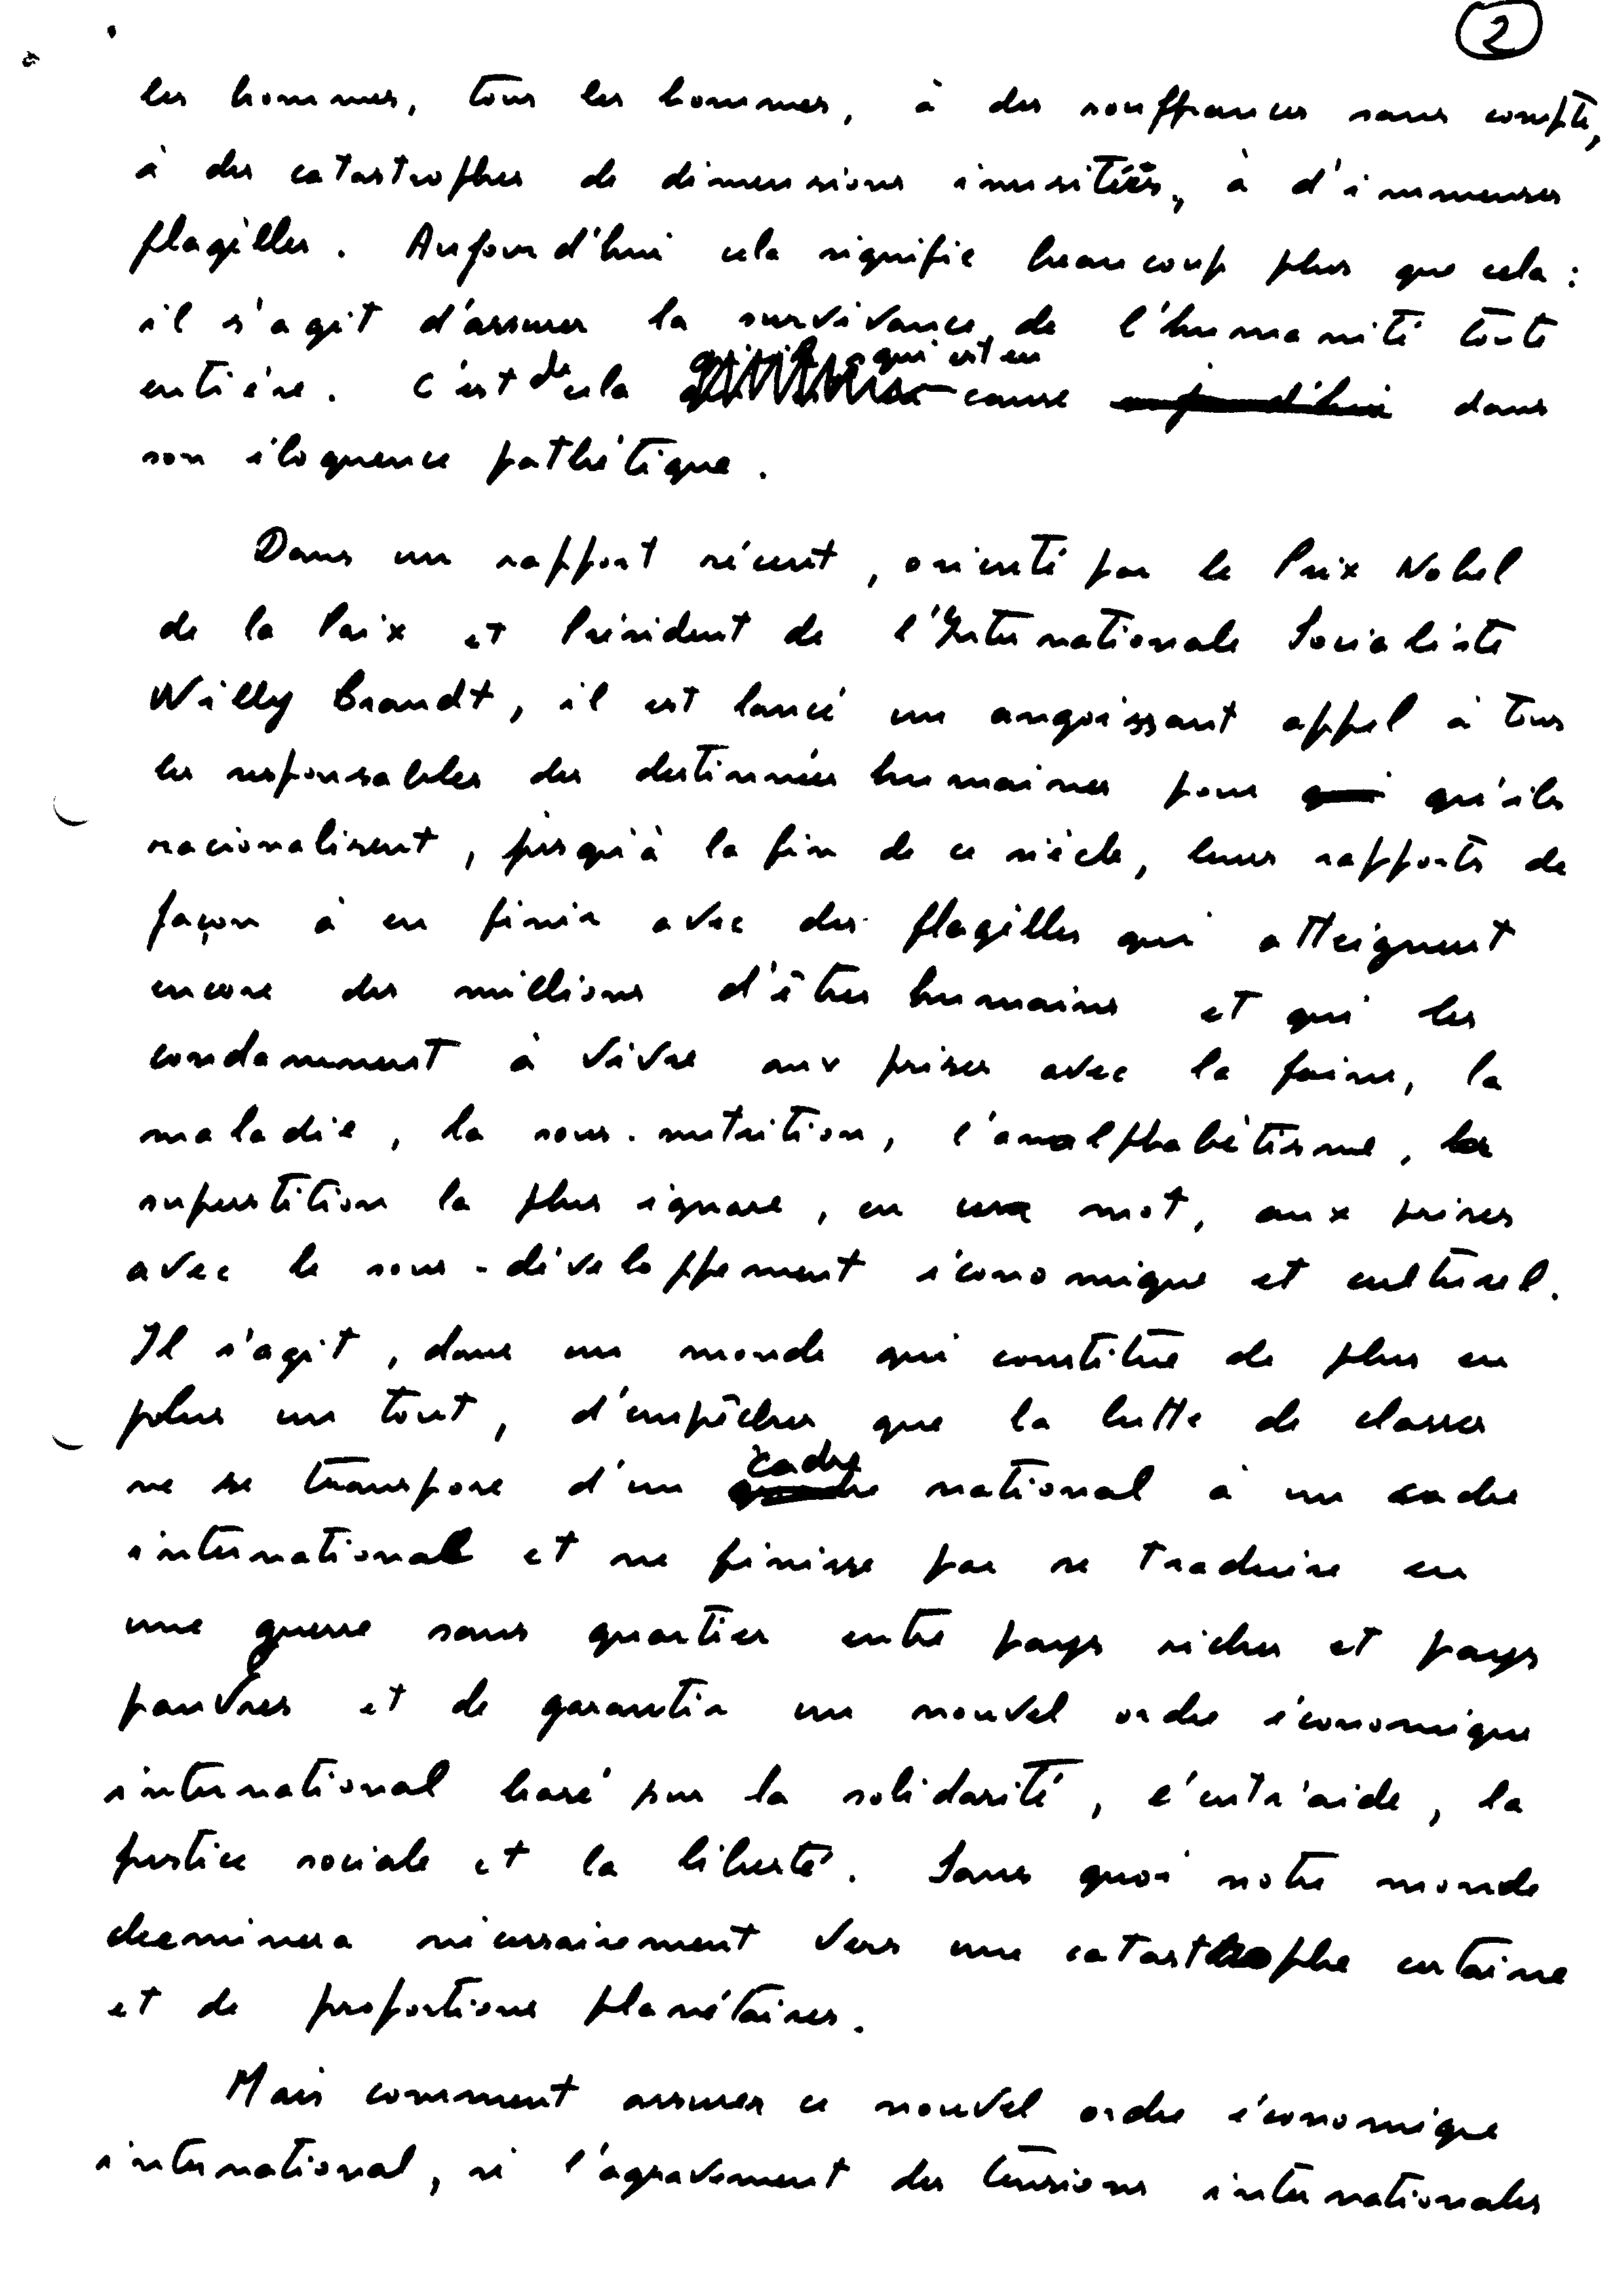 2
les hommes, tous les hommes, à des souffrances sans compte,
à des catastrophes de dimensions inusitées, à d'immenses
flagèlles. Aujourd'hui cela signifie beaucoup plus que cela :
il s'agit d'assurer la survivance de l'humanité toute
entière. C'est de cela qui est en cause aujourd'hui dans
son éloquence pathétique.
Dans un rapport récent, orienté par le Prix Nobel
de la Paix et Président de l'Internationale Socialiste
Willy Brandt, il est lancé un angoissant appel à tous
les responsables des destinnées humaines pour qui qu'ils
racionalisent, jusqu'à la fin de ce siècle, leurs rapports de
façon à en finir avec des flagèlles qui atteignent
encore des millions d'êtres humains et qui les
condamnent à vivre aux prises avec la faim, la
maladie, la sous-nutrition, l'analphabétisme, la
superstition la plus ignare, en un mot, aux prises
avec le sous-développement économique et culturel.
Il s'agit, dans un monde qui constitue de plus en
plus un tout, d'empêcher que la lutte de classes
ne se transpose d'un cadre national à un cadre
international et ne finisse par se traduire en
une guerre sans quartier entre pays riches et pays
pauvres et de garantir un nouvel ordre économique
international basé sur la solidarité, l'entr'aide, la
justice sociale et la liberté. Sans quoi notre monde
cheminera nécessairement vers une catastrophe certaine
et de proportions planétaires.
Mais comment assurer ce nouvel ordre économique
international, si l'agravement des tensions internationales